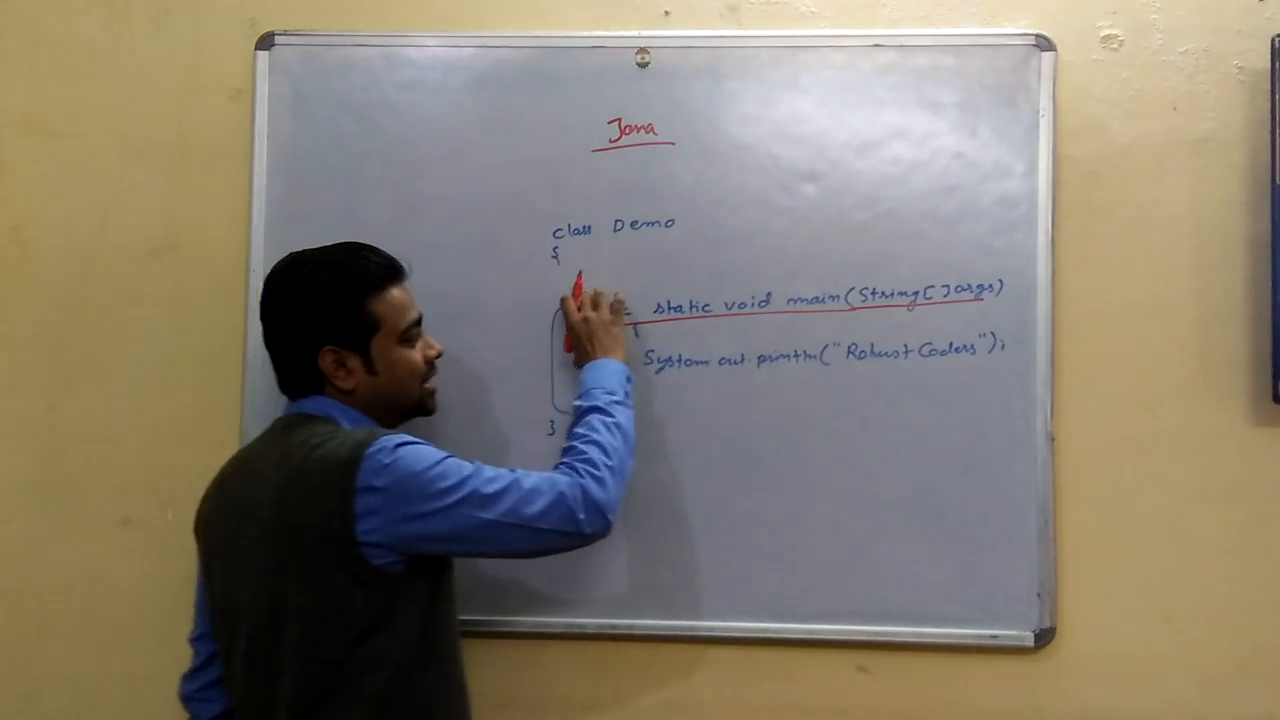 Java
class Demo
{
static void main(String[]args)
{
System.out.println("Robust Coders");
}